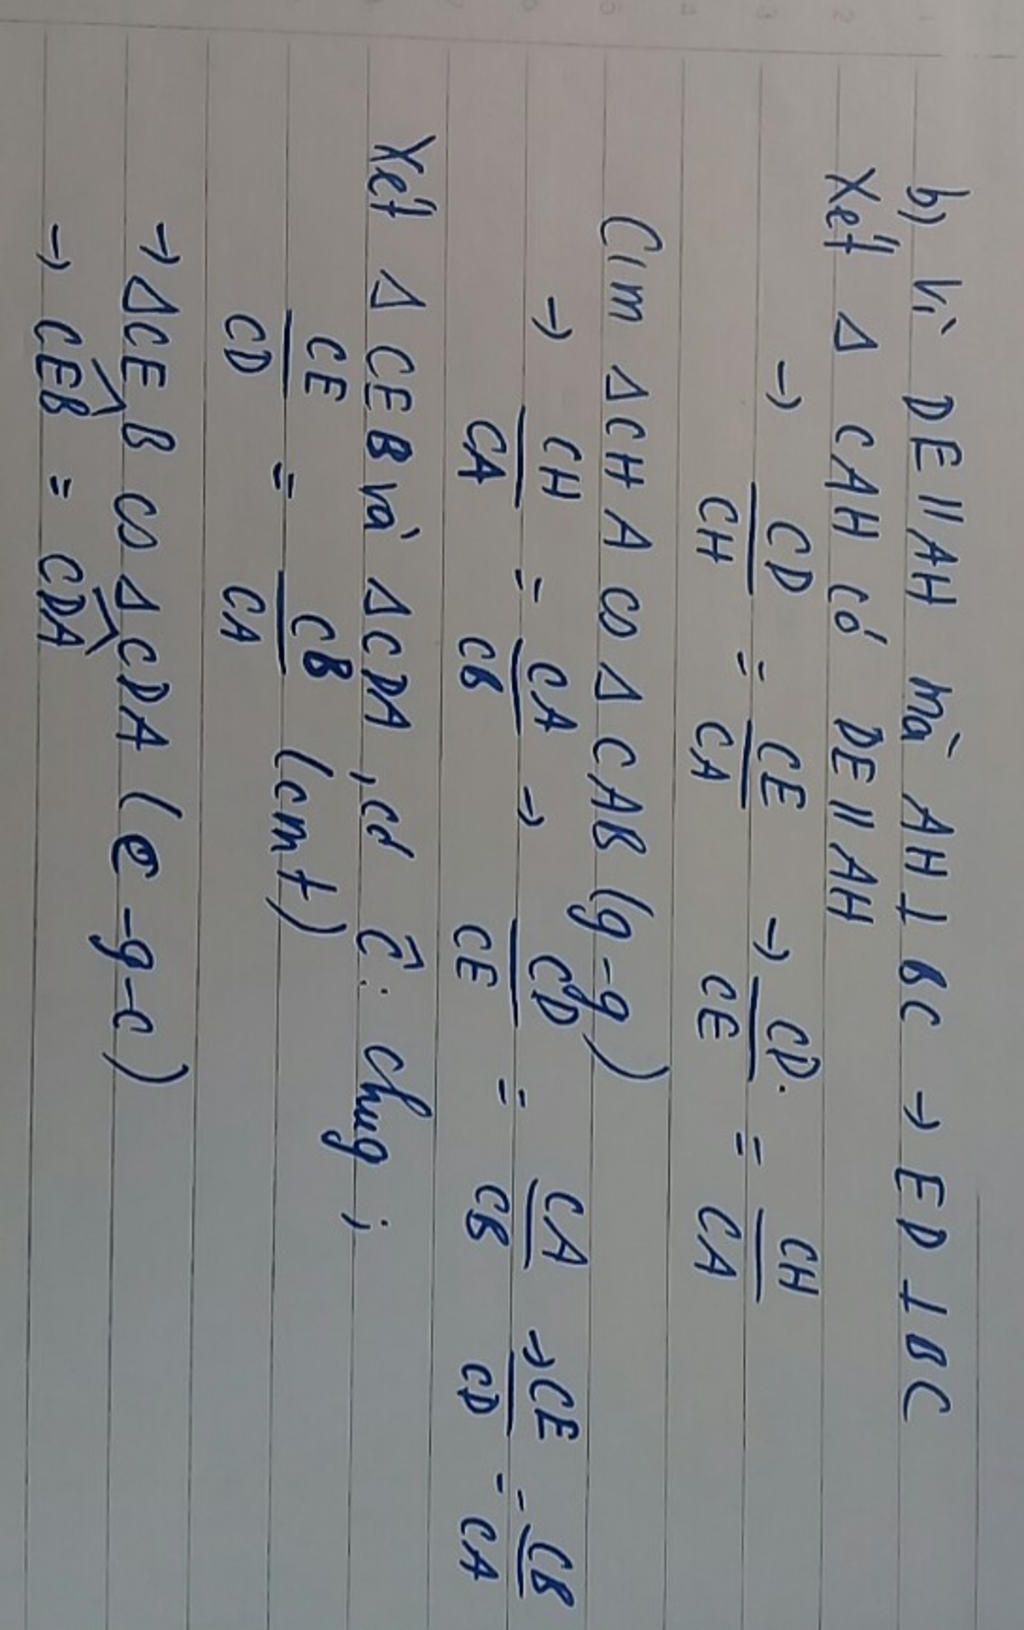 b) Vì DE // AH mà AH ⊥ BC → ED ⊥ BC
Xét Δ CAH có DE // AH
→ CD/CH = CE/CA → CD/CE = CH/CA
C/m ΔCHA ∽ Δ CAB (g-g)
→ CH/CA = CA/CB → CD/CE = CA/CB → CE/CD = CB/CA
Xét Δ CEB và ΔCDA, có Ĉ: chug;
CE/CD = CB/CA (cmt)
→ ΔCEB ∽ ΔCDA (c-g-c)
→ CÊB = CD̂A